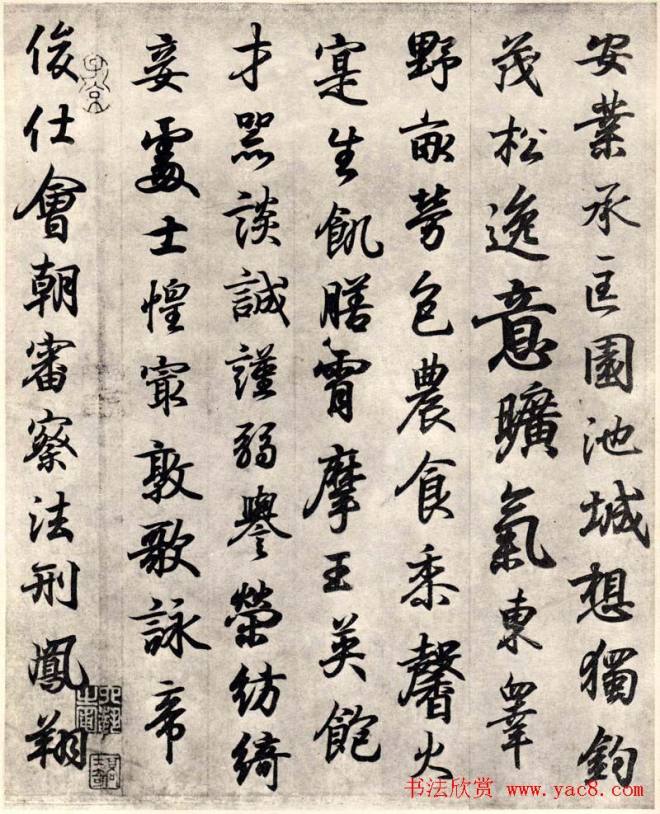 安業承匡園池城想獨鈞
茂松逸意曠氣東睾
野畝勞包農食黍馨火
寔生飢膳霄摩王英飽
才器談誠謹弱譽榮紡綺
妾處士惶敦歌詠帝
俊仕會朝審察法刑鳳翔
书法欣赏 www.yac8.com